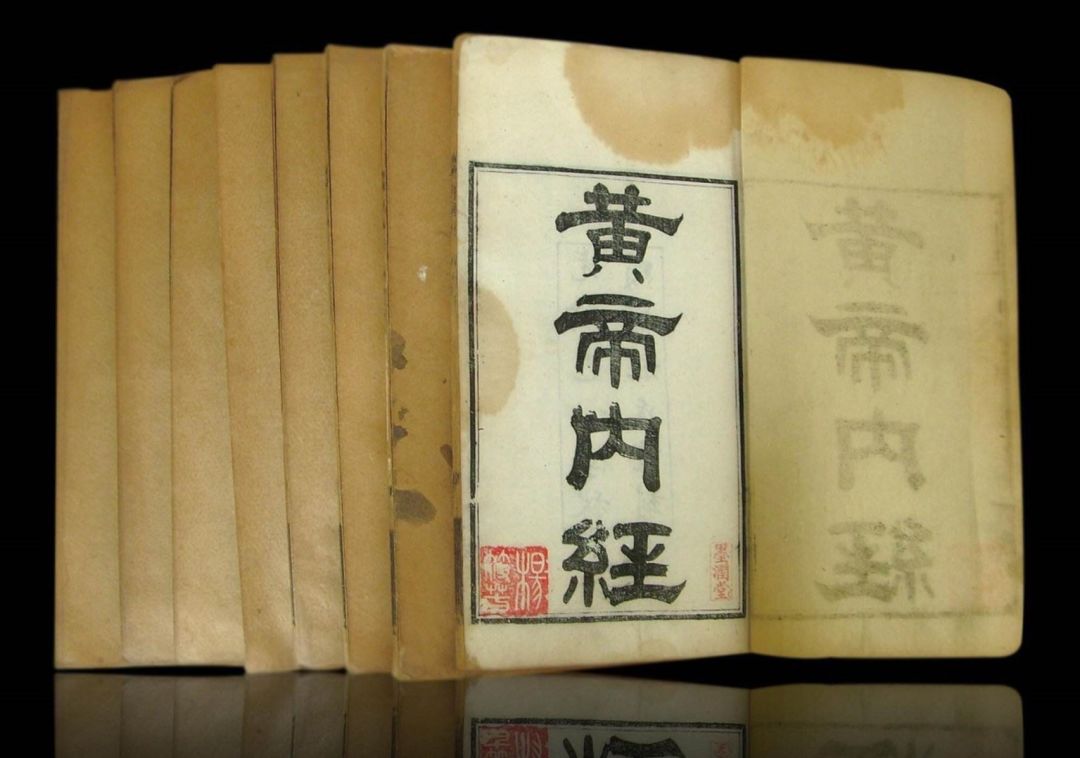 黃帝內經
墨潤堂